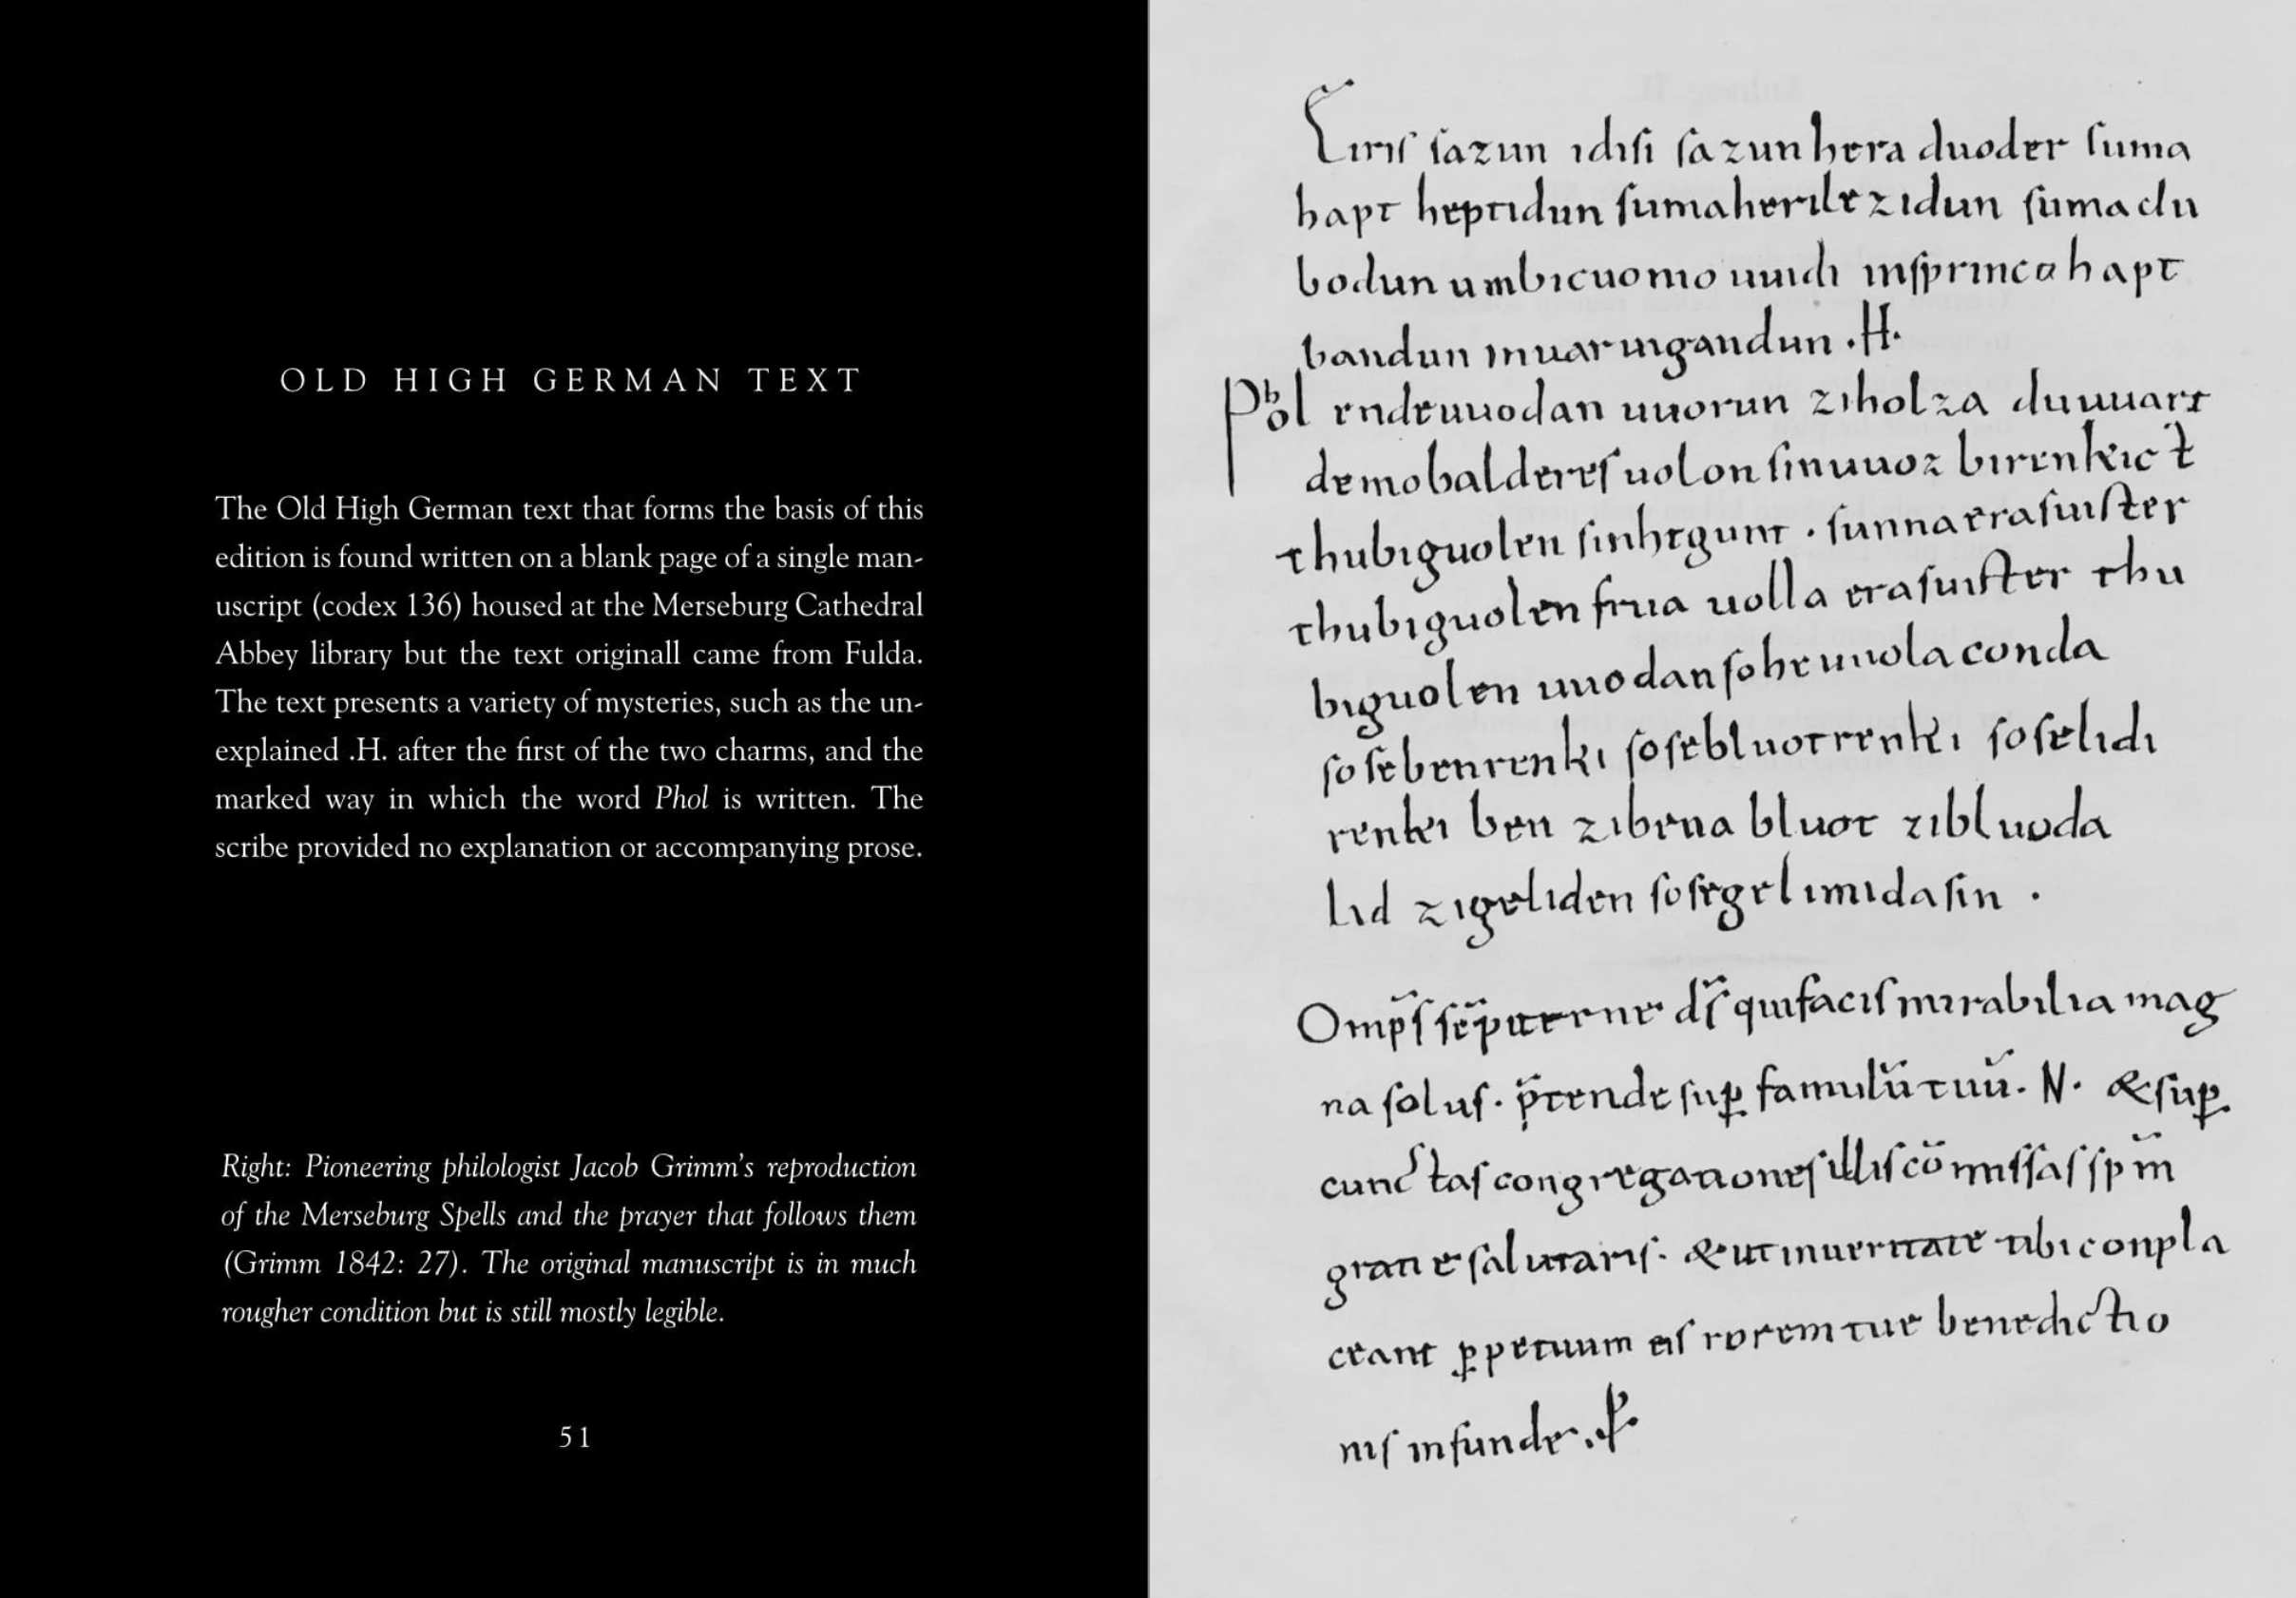 OLD HIGH GERMAN TEXT
The Old High German text that forms the basis of this
edition is found written on a blank page of a single man-
uscript (codex 136) housed at the Merseburg Cathedral
Abbey library but the text originall came from Fulda.
The text presents a variety of mysteries, such as the un-
explained .H. after the first of the two charms, and the
marked way in which the word Phol is written. The
scribe provided no explanation or accompanying prose.
Right: Pioneering philologist Jacob Grimm's reproduction
of the Merseburg Spells and the prayer that follows them
(Grimm 1842: 27). The original manuscript is in much
rougher condition but is still mostly legible.
51
Eiriſ ſazun idiſi ſazunhera duoder ſuma
hapt heptidun ſumaherilezidun ſumaclu
bodun umbicuonio uuidi inſprincahapt
bandun inuaruigandun .H.
Phol endeuuodan uuorun ziholza duuuart
demobaldereſuolon ſinuuoz birenkict
thubiguolen ſinhtgunt . ſunnaeraſuiſter
thubiguolen friia uolla eraſuiſter thu
biguolen uuodanſoheuuolaconda
ſoſebenrenki ſoſebluotrenki ſoſelidi
renki ben zibena bluot zibluoda
lid zigeliden ſoſegelimidaſin .
Omp̃ſ ſẽpiterne dſ̃ quifaciſmirabilia mag
na ſoluſ. p̃tende ſup̲ famulũ tuũ. N. &ſup̲
cunctaſ congregationeſ illiſ cõmiſſaſ ſpm̃
gratie ſalutariſ. & utinueritate tibi conpla
ceant p̲petuum eiſ roremtue benedictio
niſ infunde.